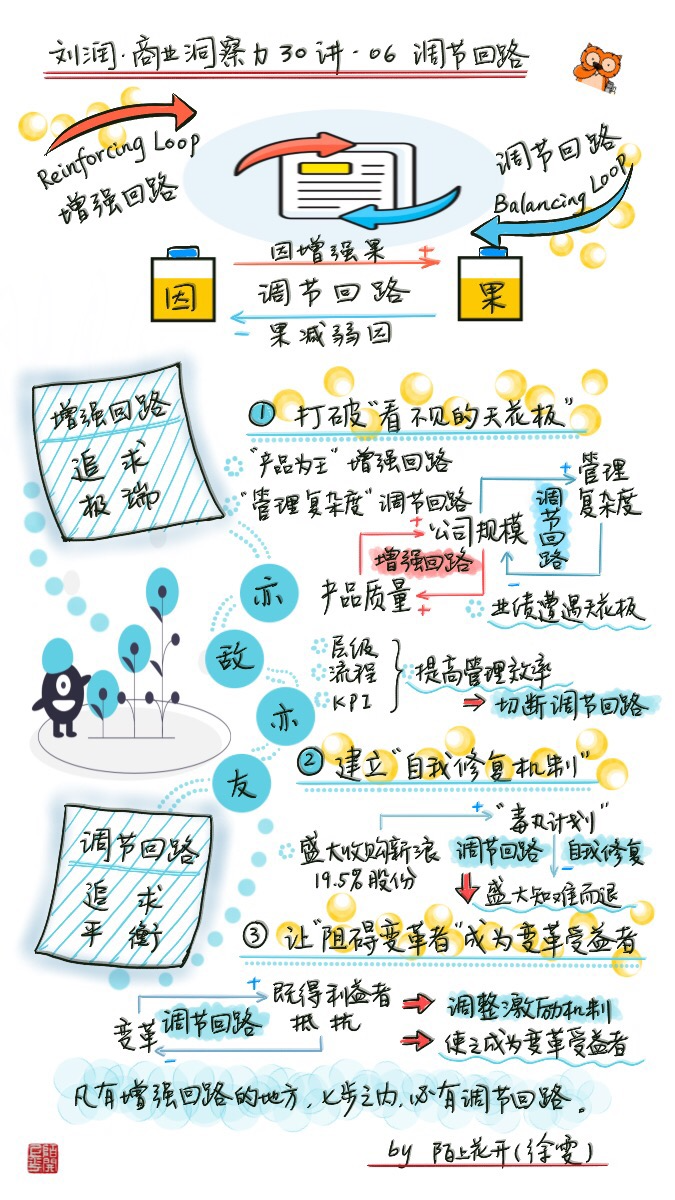 刘润·商业洞察力30讲·06 调节回路
Reinforcing Loop
增强回路
调节回路
Balancing Loop
因
因增强果
+
调节回路
-
果减弱因
果
增强回路
追求
极端
① 打破“看不见的天花板”
“产品为王”增强回路
“管理复杂度”调节回路
+
管理
复杂度
调节回路
+
公司规模
增强回路
产品质量
+
-
业绩遭遇天花板
亦
敌
亦
友
层级
流程
KPI
提高管理效率
切断调节回路
② 建立“自我修复机制”
+
“毒丸计划”
盛大收购新浪
19.5%股份
调节回路
-
自我修复
盛大知难而退
调节回路
追求
平衡
③ 让“阻碍变革者”成为变革受益者
变革
+
调节回路
-
既得利益者
抵抗
调整激励机制
使之成为变革受益者
凡有增强回路的地方,七步之内,必有调节回路。
by 陌上花开(徐雯)